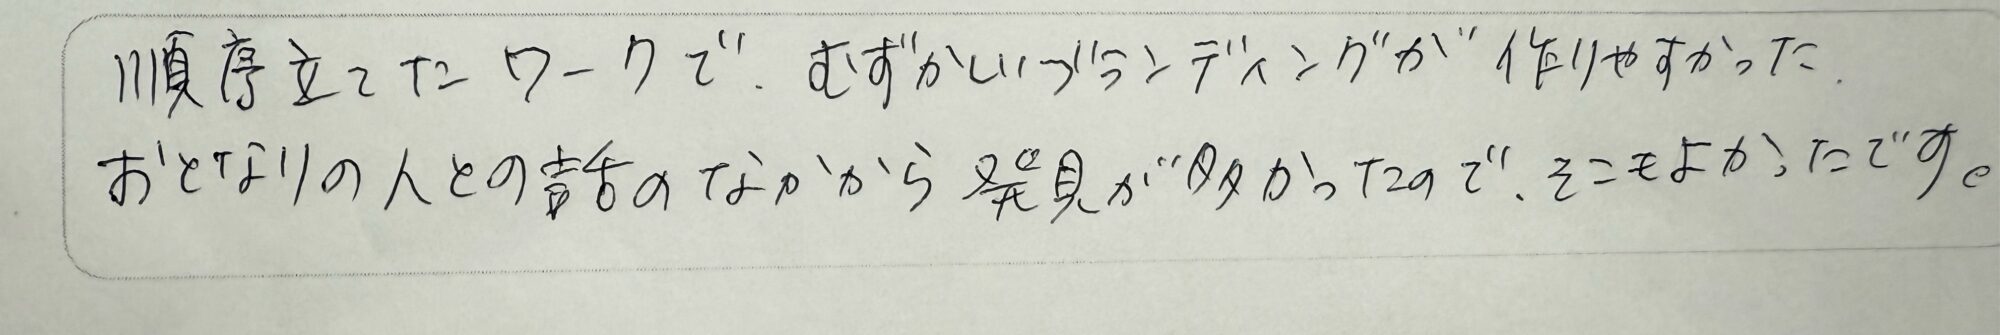 順序立てたワークで、むずかしいブランディングが作りやすかった.
おとなりの人との話のなかから発見が多かったので、そこもよかったです。